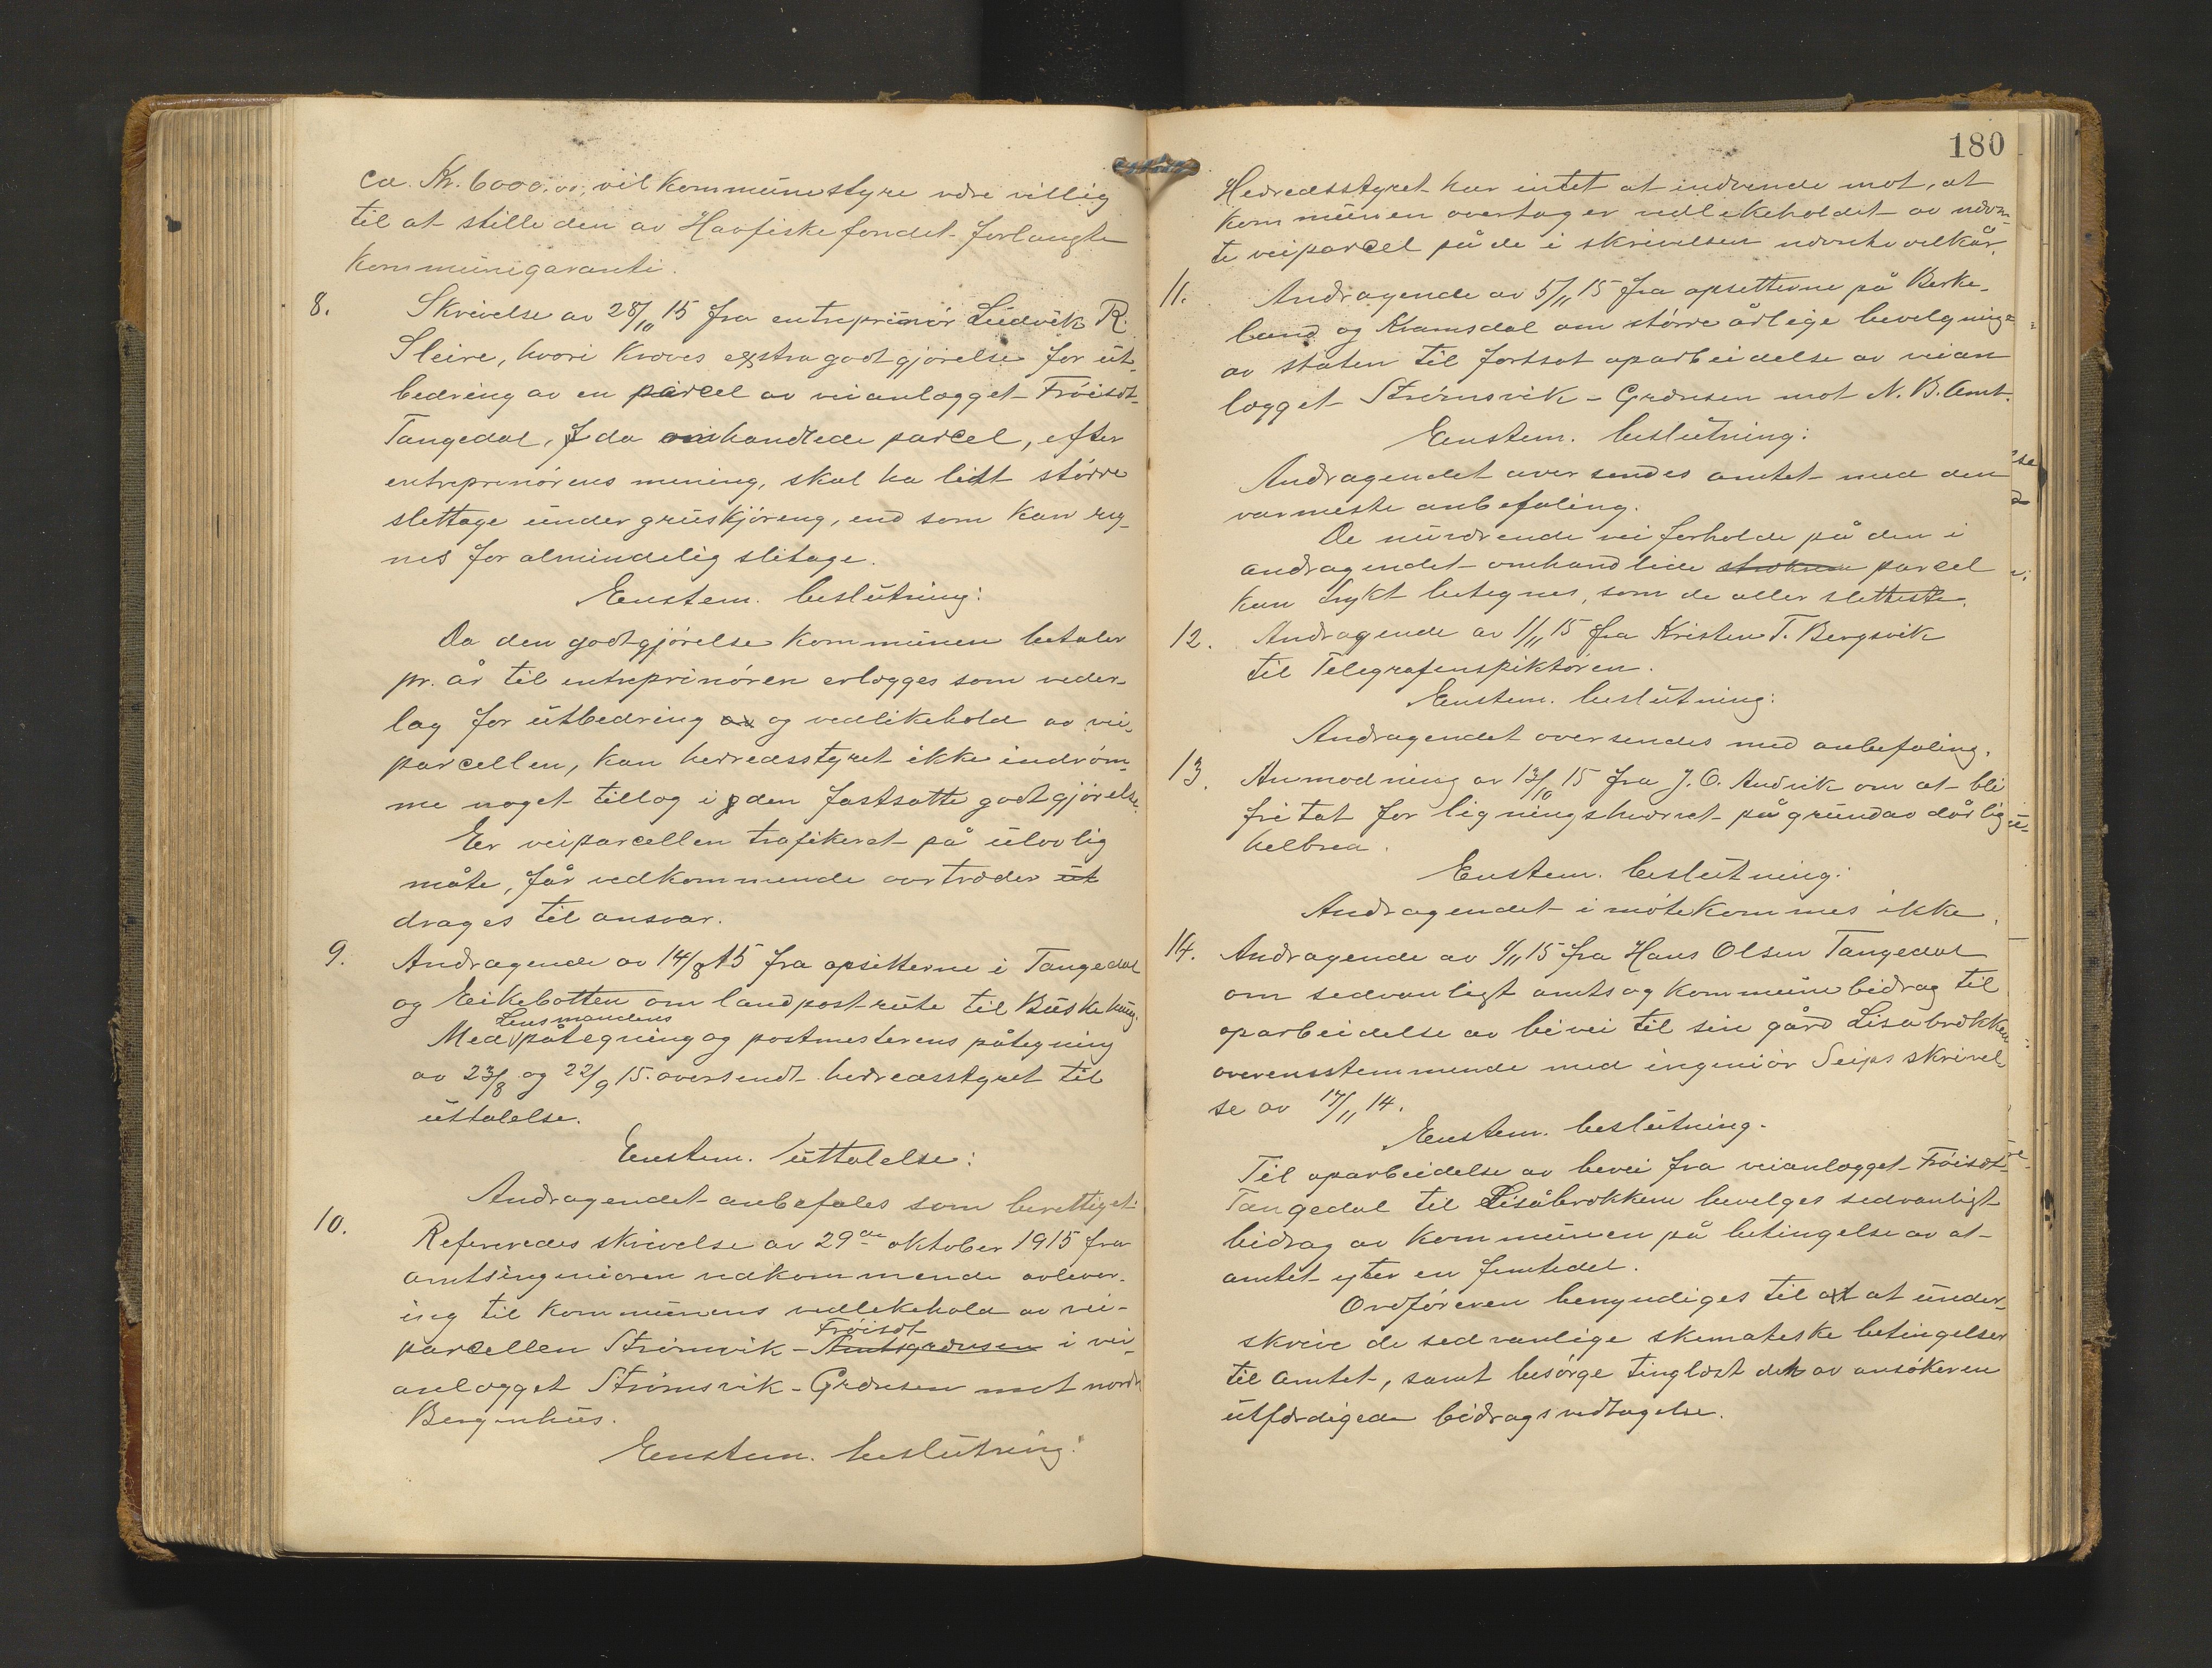 ca. Kr. 6000.00, vil kommunestyre være villig
til at stille den av Havfiskefondet forlangte
kommunegaranti.
8. Skrivelse av 28/10 15 fra entreprenør Ludvik R.
Sleire, hvori kræves exstra godtgjørelse for ut-
bedring av en parcel av veianlægget Frøiset-
Tangedal, da omhandlede parcel, efter
entreprenørens mening, skal ha lidt større
slettage under gruskjøreng, end som kan reg-
nes for almindelig slitage.
Enstem. beslutning:
Da den godtgjørelse kommunen betaler
pr. år til entreprenøren erlægges som veder-
lag for utbedring av og vedlikehold av vei-
parcellen, kan herredsstyret ikke indrøm-
me noget tillæg i den fastsatte godtgjørelse.
Er veiparcellen trafikeret på ulovlig
måte, får vedkommende overtræder ut
drages til ansvar.
9. Andragende av 14/8 15 fra opsitterne i Tangedal
og Eikebotten om landpostrute til Buskehaug.
Lensmandens
Med påtegning og postmesterens påtegning
av 23/8 og 22/9 15. oversendt herredsstyret til
uttalelse.
Enstem. uttalelse:
Andragendet anbefales som berettiget.
10. Refereredes skrivelse av 29de oktober 1915 fra
amtsingeniøren vedkommende avlever-
ing til kommunens vedlekehold av vei-
Frøiset
parcellen Strømvik - Amtsgrænsen i vei-
anlægget Strømsvik - Grænsen mot nordre
Bergenhus.
Enstem. beslutning:
180
Herredsstyret har intet at indvende mot, at
kommunen overtager vedlekeholdet av nævn-
te veiparcel på de i skrivelsen nævnte vilkår.
11. Andragende av 5/11 15 fra opsetterne på Berke-
land og Kvamsdal om større årlige bevilgninger
av staten til fortsat oparbeidelse av veian
lægget Strømsvik - Grænsen mot N. B. Amt.
Enstem. beslutning:
Andragendet oversendes amtet med den
varmeste anbefaling.
De nuværende veiforholde på den i
andragendet omhandlede strækn parcel
kan trykt betegnes, som de aller sletteste.
12. Andragende av 1/11 15 fra Kristen T. Bergsvik
til Telegrafenspiktøren.
Enstem. beslutning:
Andragendet oversendes med anbefaling.
13. Anmodning av 13/10 15 fra J. O. Andvik om at bli
fritat for ligningshvervet på grund av dårlig
helbred.
Enstem. beslutning:
Andragendet imøtekommes ikke.
14. Andragende av 1/11 15 fra Hans Olsen Tangedal
om sedvanligt amts og kommunebidrag til
oparbeidelse av bivei til sin gård Lisåbrækken
overensstemmende med ingeniør Seips skrivel
se av 17/11 14.
Enstem. beslutning.
Til oparbeidelse av bevei fra veianlægget Frøiset-
Tangedal til Lisåbrækken bevelges sedvanligt
bidrag av kommunen på betingelse av at
amtet yter en femtedel.
Ordføreren bemyndiges til at at under-
skrive de sedvanlige skemateske betingelser
til Amtet, samt besørge tinglæst den av ansøkeren
utfærdigede bidragsvedtagelse.